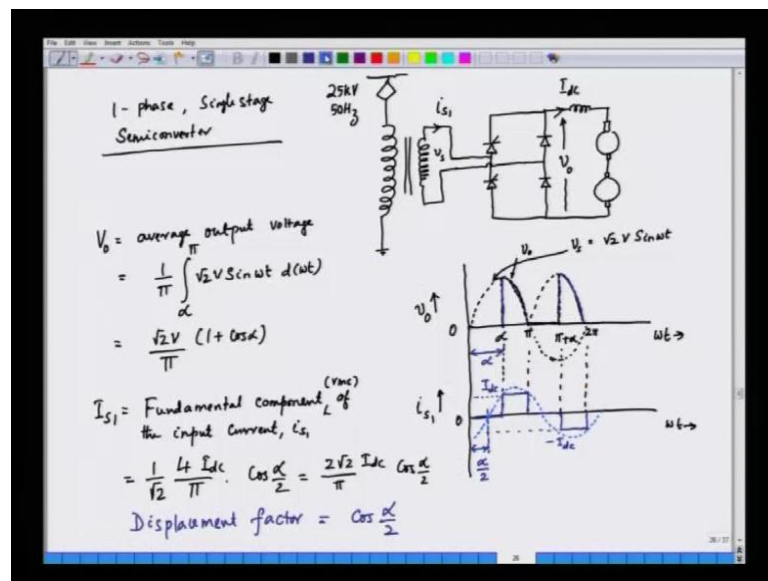 File Edit View Insert Actions Tools Help
1 - phase, Single stage
Semiconverter
25kV
50Hz
i_s1
v_s
I_dc
V_0
V_0 = average output voltage
= 1/π ∫_α^π √2 V Sin ωt d(ωt)
= √2V/π (1 + Cosα)
I_s1 = Fundamental component (rms) of
the input current, i_s1
= 1/√2 4 I_dc/π . Cos α/2 = 2√2/π I_dc Cos α/2
Displacement factor = Cos α/2
v_0 v_s = √2 V Sin ωt
v_0 ↑
0 α π π+α 2π ωt→
α
I_dc
i_s1 ↑
0 ωt→
- I_dc
α/2
26
26/37